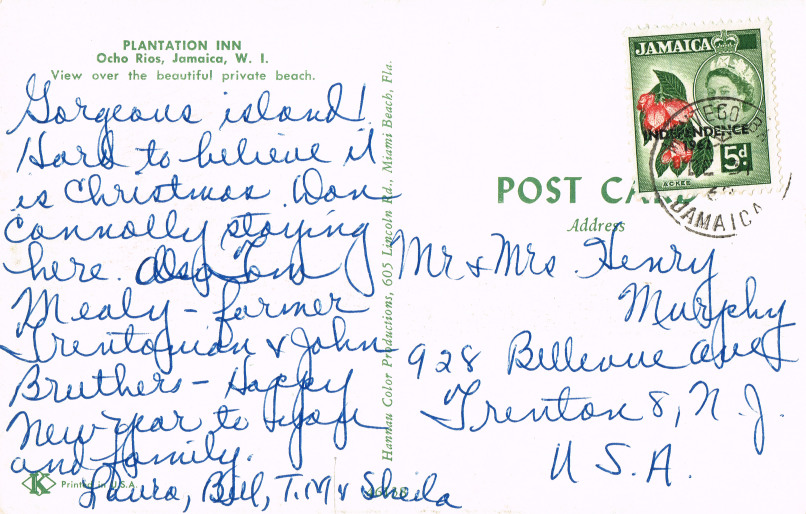 PLANTATION INN
Ocho Rios, Jamaica, W. I.
View over the beautiful private beach.
Gorgeous island!
Hard to believe it
is Christmas. Don
Connolly staying
here. Also Tom
Mealy - former
Trentonian & John
Bruthers - Happy
New Year to you
and family.
Laura, Bill, T.M & Sheila
Printed in U.S.A.
K
Hannau Color Productions, 605 Lincoln Rd., Miami Beach, Fla.
JAMAICA
INDEPENDENCE
1962
5d
ACKEE
JAMAICA
POST CARD
Address
Mr & Mrs Henry
Murphy
928 Bellevue Ave
Trenton 8, N.J.
U.S.A.